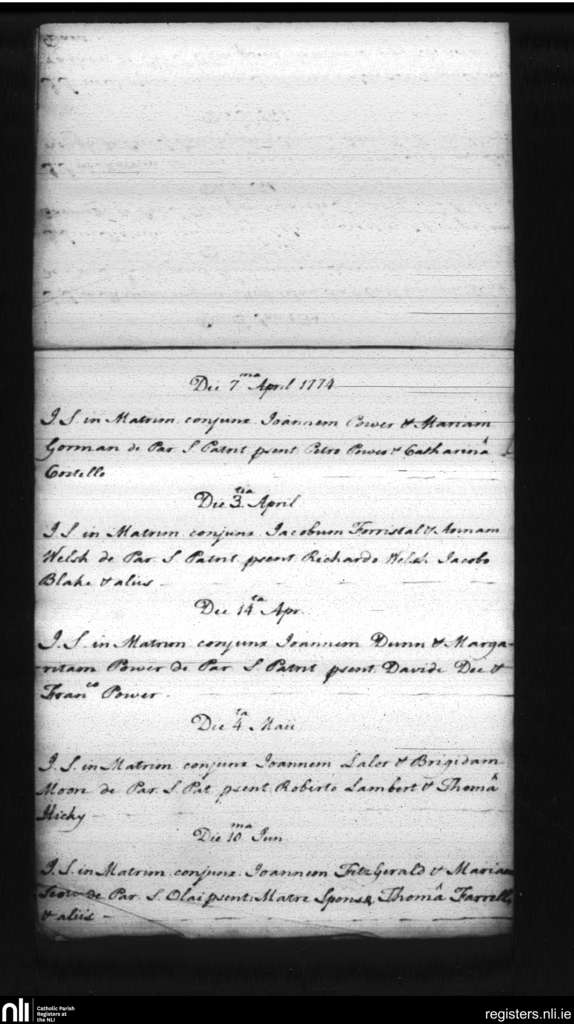 Die 7ma April 1774
I. S. in Matrim conjunx Joannem Power & Mariam
Gorman de Par S Patrit psent Petro Power & Catharinâ
Costello
Die 3tia April
I S in Matrim conjunx Jacobum Forristal & Annam
Welsh de Par S Patrit psent Richardo Welsh Jacobo
Blake & aliis
Die 14ta Apr.
I. S. in Matrim conjunx Joannem Dunn & Marga-
ritam Power de Par S. Patrit psent Davide Dee &
Franco Power
Die 4ta Maii
I. S. in Matrim conjunx Joannem Lalor & Brigidam
Moore de Par. S. Pat psent Roberto Lambert & Thomâ
Hicky
Die 10ma Jun
I. S. in Matrim conjunx Joannem FitzGerald & Mariam
de Par S. Olai psent Matre Sponsæ, Thomâ Farrell
& aliis
nli
Catholic Parish
Registers at
the NLI
registers.nli.ie